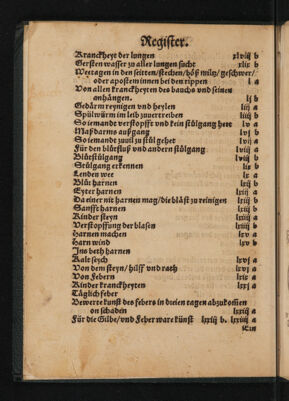 Register.
Kranckheyt der lungen xlviij b
Gersten wasser zu aller lungen sucht xlix b
Weetagen in den seitten/stechen/böß miltz/geschwer/
oder apostem innen bei den rippen l a
Von allen kranckheyten des bauchs und seinen
anhängen. lj b
Gedärm reynigen und heylen liij a
Spülwürm im leib zuuertreiben liij b
So iemande verstopfft und kein stülgang hett lv a
Maßdarms außgang lvj b
So iemande zuuil zu stül gehet lvj a
Für den blütfluß und andern stülgang lvij a
Blütstülgang lviij b
Stülgang erkennen lx b
Lenden wee lx a
Blüt harnen lxj b
Eyter harnen lxj a
Da einer nit harnen mag/die bläst zu reinigen lxij b
Sanfft harnen lxiij a
Kinder steyn lxiij a
Verstopffung der blasen lxiij b
Harnen machen lxv a
Harn wind lxv b
Ins beth harnen
Kalt seych lxvj a
Von dem steyn/hilff und rath lxvj a
Von Febern lxix a
Kinder kranckheyten lxxj a
Täglich feber
Bewerte kunst des febers in dreien tagen abzukomen
on schaden lxxiij a
Für die Gilbe/und Feber ware künst lxxij b. lxxiiij a
Ein